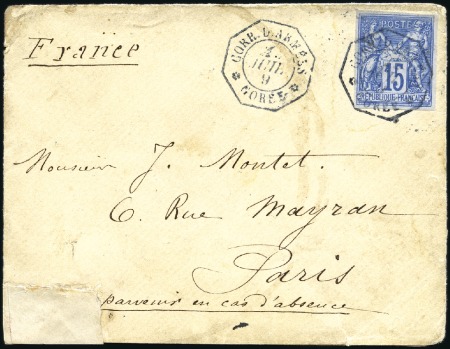 France
CORR. D. ARMÉES
JUIL
9
GORÉE
POSTE
15
REPUBLIQUE FRANCAISE
Monsieur J. Montet.
6. Rue Mayran
Paris
parvenir en cas d'absence